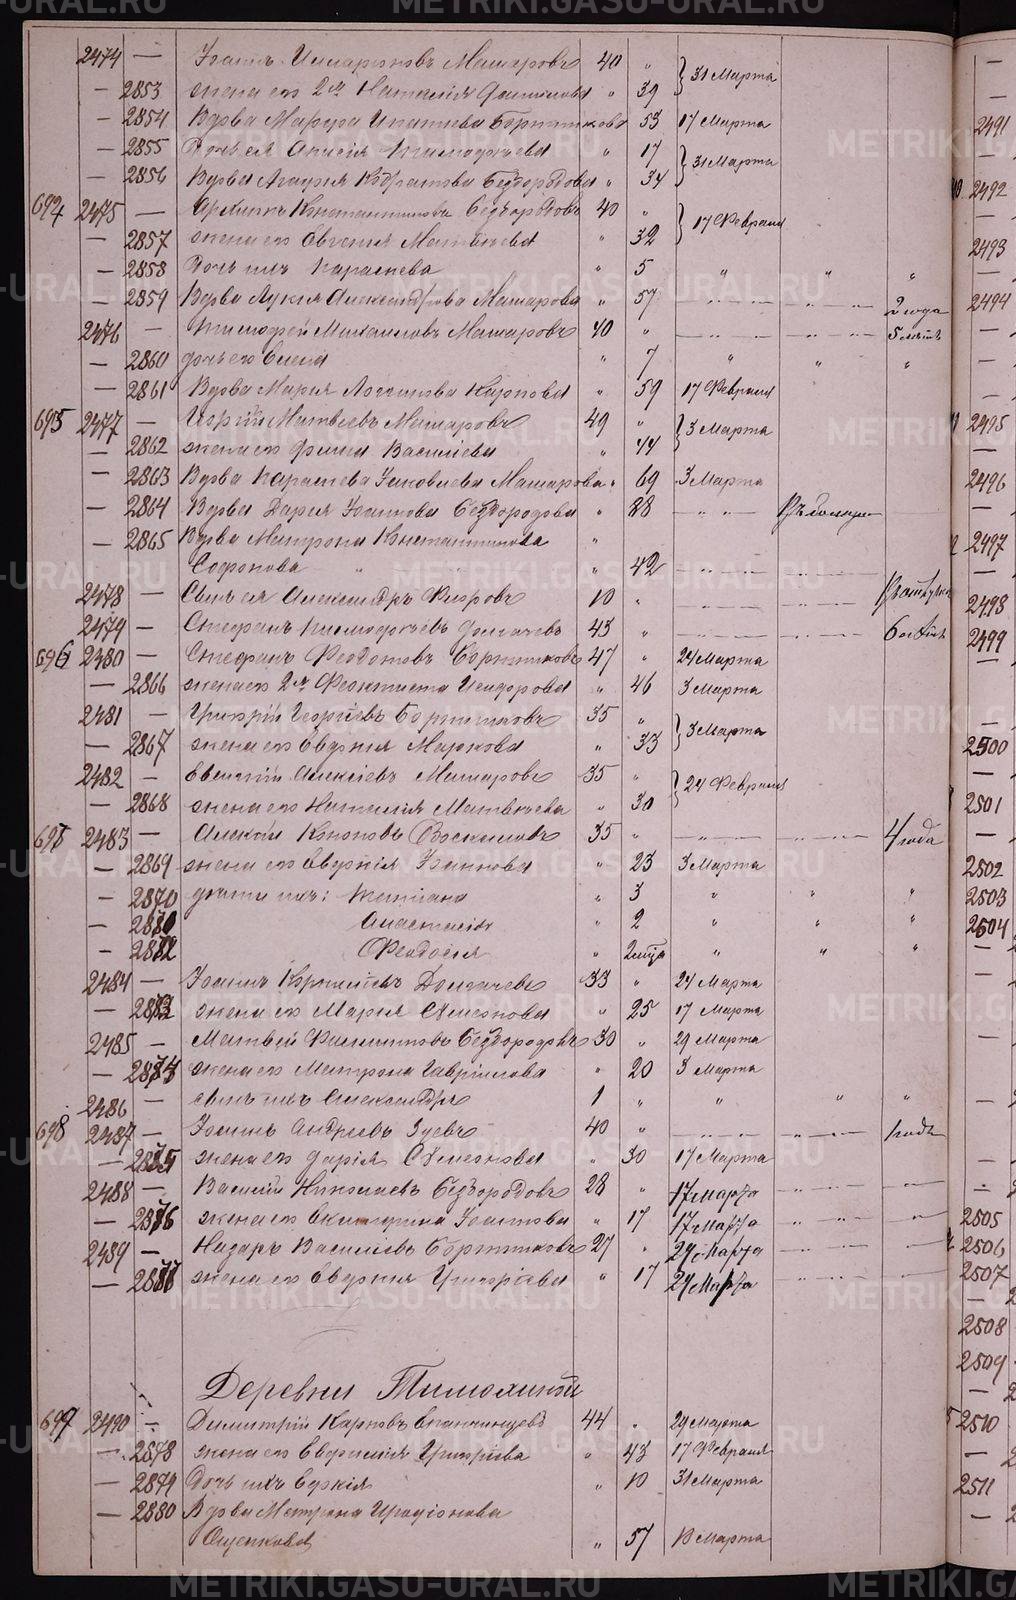 2474 — Иоаннъ Илларіоновъ Макаровъ 40 „ } 31 Марта
— 2853 жена его 2я Наталія „ 39
— 2854 Вдова Марѳа Ипатіева Бортникова „ 53 17 Марта
— 2855 Дочь ея Анисія Тимоѳѣева „ 17 } 31 Марта
— 2856 Вдова Агафія Безбородова „ 34
694 2475 — Константиновъ Безбородовъ 40 „ } 17 Февраля
— 2857 жена его Евгенія Матвѣева „ 32
— 2858 Дочь ихъ Параскева „ 5 „ „ „
— 2859 Вдова Лукія Александрова Макарова „ 57 — „ — „ — 2 года
2476 — Тимоѳей Михаиловъ Макаровъ 40 „ — „ — „ — 5 лѣтъ
— 2860 дочь его Елена „ 7 „ „ „
— 2861 Вдова Марія Карпова „ 59 17 Февраля
695 2477 — Георгій Матвѣевъ Макаровъ 49 „ } 3 Марта
— 2862 жена его Ирина Василіева „ 44
— 2863 Вдова Параскева Іаковлева Макарова „ 69 3 Марта
— 2864 Вдова Дарія Іоаннова Безбородова „ 28 — „ —
— 2865 Вдова Матрона Константинова „
Софонова „ 42 — „ — „ —
2478 — Сынъ ея Александръ 10 „ — „ — „ —
2479 — Стефанъ Тимоѳеевъ Долгачевъ 43 „ — „ — „ — 6 лѣтъ
696 2480 — Стефанъ Ѳеодотовъ Бортниковъ 47 „ 24 Марта
— 2866 жена его 2я Ѳеоктиста Исидорова „ 46 3 Марта
2481 — Григорій Георгіевъ Бортниковъ 35 „ } 3 Марта
— 2867 жена его Евдокія Маркова „ 33
2482 — Евгеній Алексіевъ Макаровъ 35 „ } 24 Февраля
— 2868 жена его Наталія Матвѣева „ 30
697 2483 — Алексій Кононовъ 35 „ — „ — „ — 4 года
— 2869 жена его Евдокія Іоаннова „ 23 3 Марта
— 2870 дѣти ихъ: Татіана „ 3 „ „ „
— 2871 Анастасія „ 2 „ „ „
— 2872 Ѳеодосія „ 2 мѣс „ „ „
2484 — Іоаннъ Долгачевъ 33 „ 24 Марта
— 2873 жена его Марія Сѵмеонова „ 25 17 Марта
2485 — Матвѣй Филипповъ Безбородовъ 30 „ 29 Марта
— 2874 жена его Матрона Гавріилова „ 20 3 Марта
2486 — сынъ ихъ Александръ 1 „ „ „ „
698 2487 — Іоаннъ Андреевъ Зуевъ 40 „ — „ — „ — 1 годъ
— 2875 жена его Дарія Сѵмеонова „ 30 17 Марта
2488 — Василій Николаевъ Безбородовъ 28 „ 17 Марта
— 2876 жена его Екатерина Іоаннова „ 17 17 Марта
2489 — Назаръ Василіевъ Бортниковъ 27 „ 24 Марта
— 2877 жена его Евдокія Григоріева „ 17 24 Марта
Деревни Тимохиной
699 2490 — Димитрій Карповъ Епанчинцевъ 44 „ 29 Марта
— 2878 жена его Григоріева „ 43 17 Февраля
— 2879 Дочь ихъ „ 10 31 Марта
— 2880 Вдова Матрона Иродіонова
Ощепкова „ 57 Марта
2491
2492
2493
2494
2495
2496
2497
2498
2499
2500
2501
2502
2503
2504
2505
2506
2507
2508
2509
2510
2511
METRIKI.GASO-URAL.RU